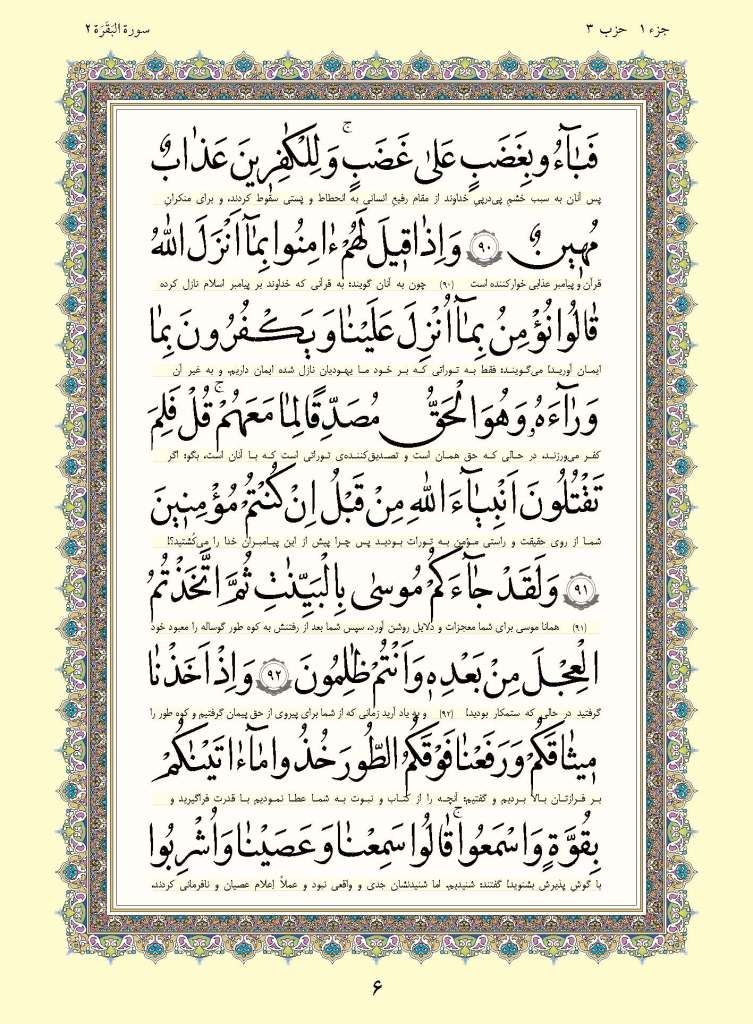 جزء ۱ حزب ۳
سورة البَقَرَة ۲
فَبَآءُو بِغَضَبٍ عَلىٰ غَضَبٍ ۚ وَ لِلْكٰفِرينَ عَذابٌ
پس آنان به سبب خشمِ پی‌درپیِ خداوند از مقام رفیعِ انسانی به انحطاط و پستی سقوط کردند، و برای منکرانِ
مُهينٌ ﴿۹۰﴾ وَ اِذا قيلَ لَهُمْ ءامِنُوا بِمآ اَنْزَلَ اللّٰهُ
قرآن و پیامبر عذابی خوارکننده است (۹۰) چون به آنان گویند: به قرآنی که خداوند بر پیامبر اسلام نازل کرده
قالُوا نُؤْمِنُ بِمآ اُنْزِلَ عَلَيْنا وَ يَكْفُرُونَ بِما
ایمان آورید! می‌گویند: فقط به توراتی که بر خود ما یهودیان نازل شده ایمان داریم. و به غیر آن
وَرآءَهُ وَ هُوَ الْحَقُّ مُصَدِّقًا لِما مَعَهُمْ ۚ قُلْ فَلِمَ
کفر می‌ورزند، در حالی که حق همان است و تصدیق‌کننده‌ی توراتی است که با آنان است. بگو: اگر
تَقْتُلُونَ اَنْبِيآءَ اللّٰهِ مِنْ قَبْلُ اِنْ كُنْتُمْ مُؤْمِنينَ
شما از روی حقیقت و راستی مؤمن به تورات بودید پس چرا پیش از این پیامبرانِ خدا را می‌کُشتید؟!
﴿۹۱﴾ وَ لَقَدْ جآءَكُمْ مُوسىٰ بِالْبَيِّنٰتِ ثُمَّ اتَّخَذْتُمُ
(۹۱) همانا موسی برای شما معجزات و دلایل روشن آورد، سپس شما بعد از رفتنش به کوه طور گوساله را معبود خود
الْعِجْلَ مِنْ بَعْدِه وَ اَنْتُمْ ظٰلِمُونَ ﴿۹۲﴾ وَ اِذْ اَخَذْنا
گرفتید در حالی که ستمکار بودید! (۹۲) و به یاد آرید زمانی که از شما برای پیروی از حق پیمان گرفتیم و کوه طور را
ميثاقَكُمْ وَ رَفَعْنا فَوْقَكُمُ الطُّورَ خُذُوا مآ ءاتَيْنٰكُمْ
بر فرازتان بالا بردیم و گفتیم: آنچه را از کتاب و نبوت به شما عطا نمودیم با قدرت فراگیرید و
بِقُوَّةٍ وَ اسْمَعُوا ۚ قالُوا سَمِعْنا وَ عَصَيْنا وَ اُشْرِبُوا
با گوشِ پذیرش بشنوید! گفتند: شنیدیم. اما شنیدنشان جدی و واقعی نبود و عملاً اِعلام عصیان و نافرمانی کردند.
۶